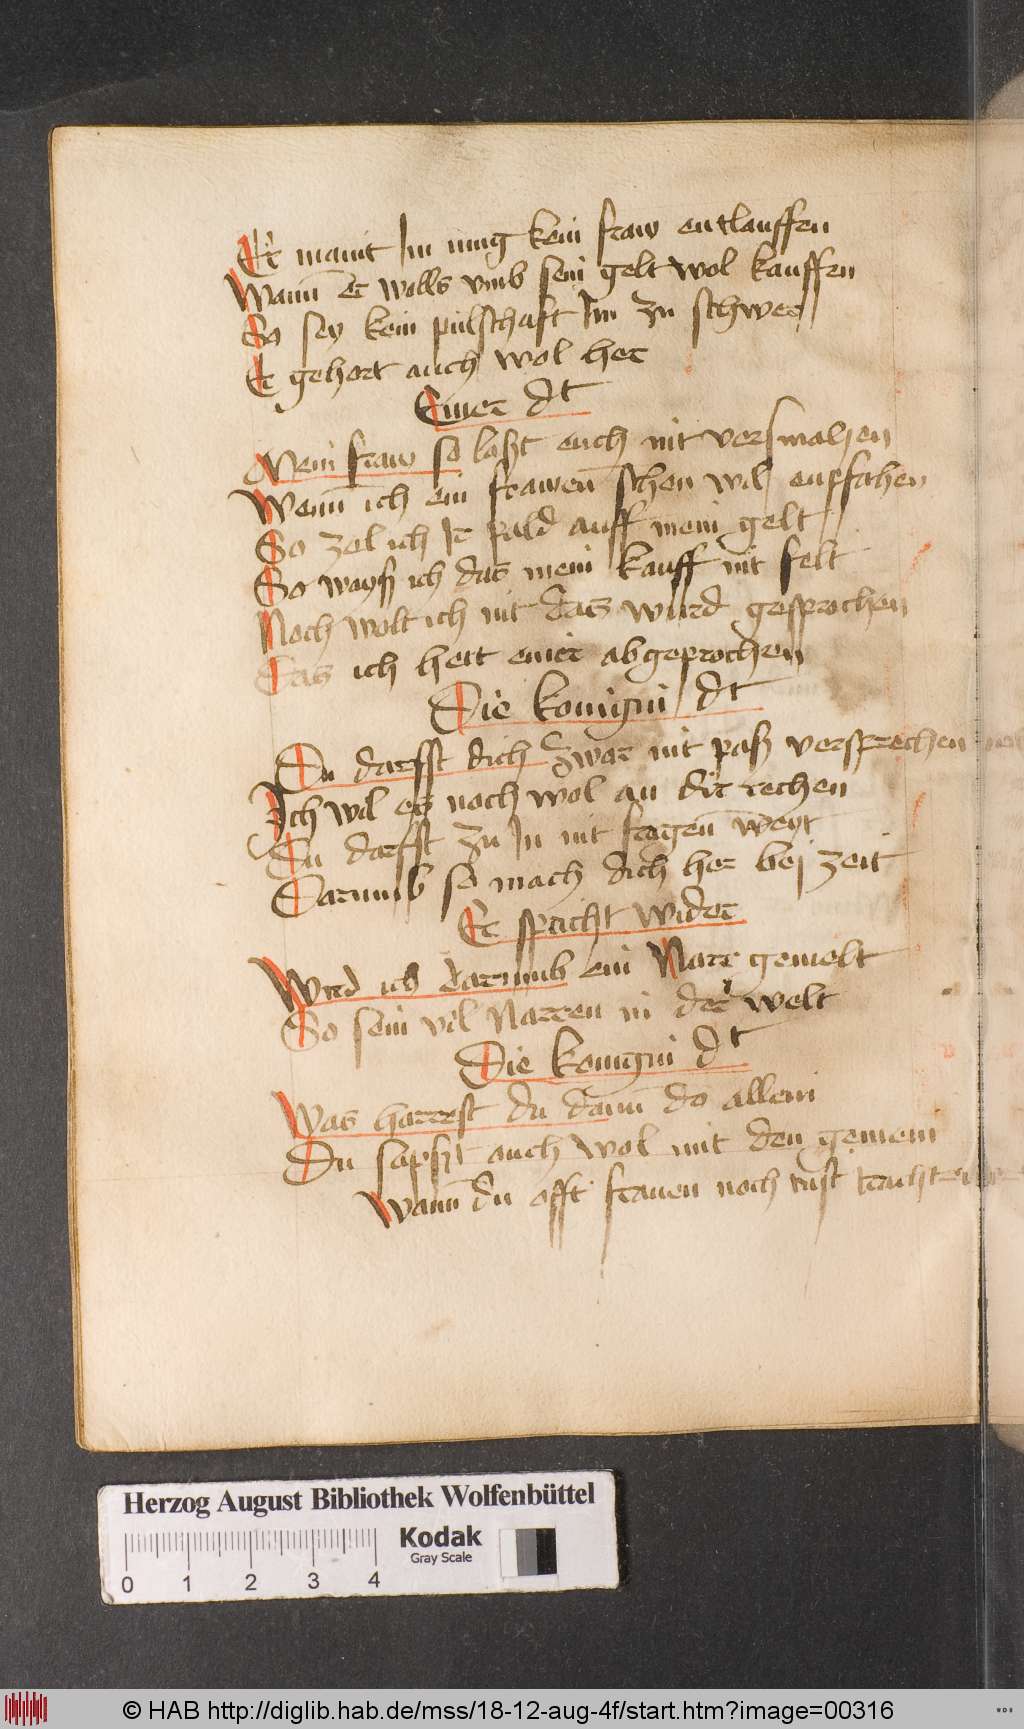 Er maint Im mug kein fraw entlauffen
Wann er wolls vmb sein gelt wol kauffen
So sey kein pulschaft Im zu schwer
Er gehort auch wol her
Einer dt
Mein fraw so laßt euch nit versmahen
Wenn ich ein frawen schon wil enpfahen
So zel ich Ir pald auff mein gelt
So wayß ich das mein kauff nit felt
Noch wolt ich nit das wurd gesprochen
Das ich hett einer abgeprochen
Die konigin dt
Du darffst dich zwar nit paß versprechen
Ich wil es noch wol an dir rechen
Du darffst zu In nit fragen weyt
Darumb so mach dich her bei zeit
Er spricht wider
Wird ich darumb ein Narr gemelt
So sein vil Narren in der welt
Die konigin dt
Was harrest du dann do allein
Du sapst auch wol mit den gemein
Wann du offt frauen noch rust
Herzog August Bibliothek Wolfenbüttel
Kodak
Gray Scale
0 1 2 3 4
© HAB http://diglib.hab.de/mss/18-12-aug-4f/start.htm?image=00316